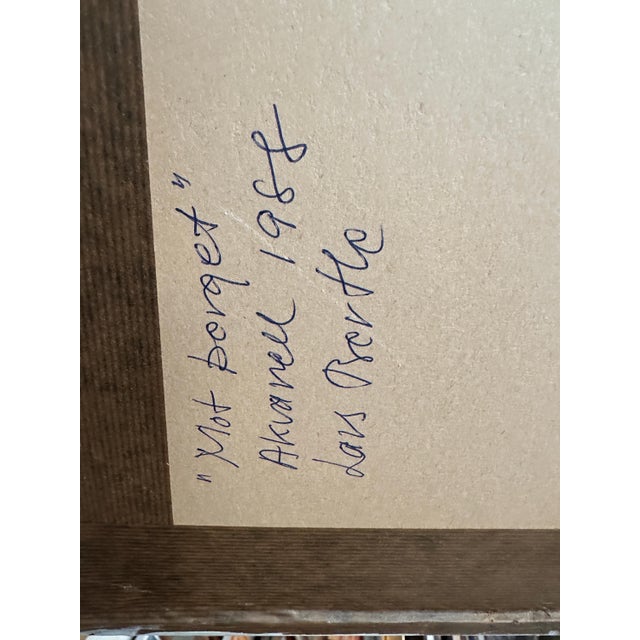 "Mot torget"
Akvarell 1988
Lars Berthe